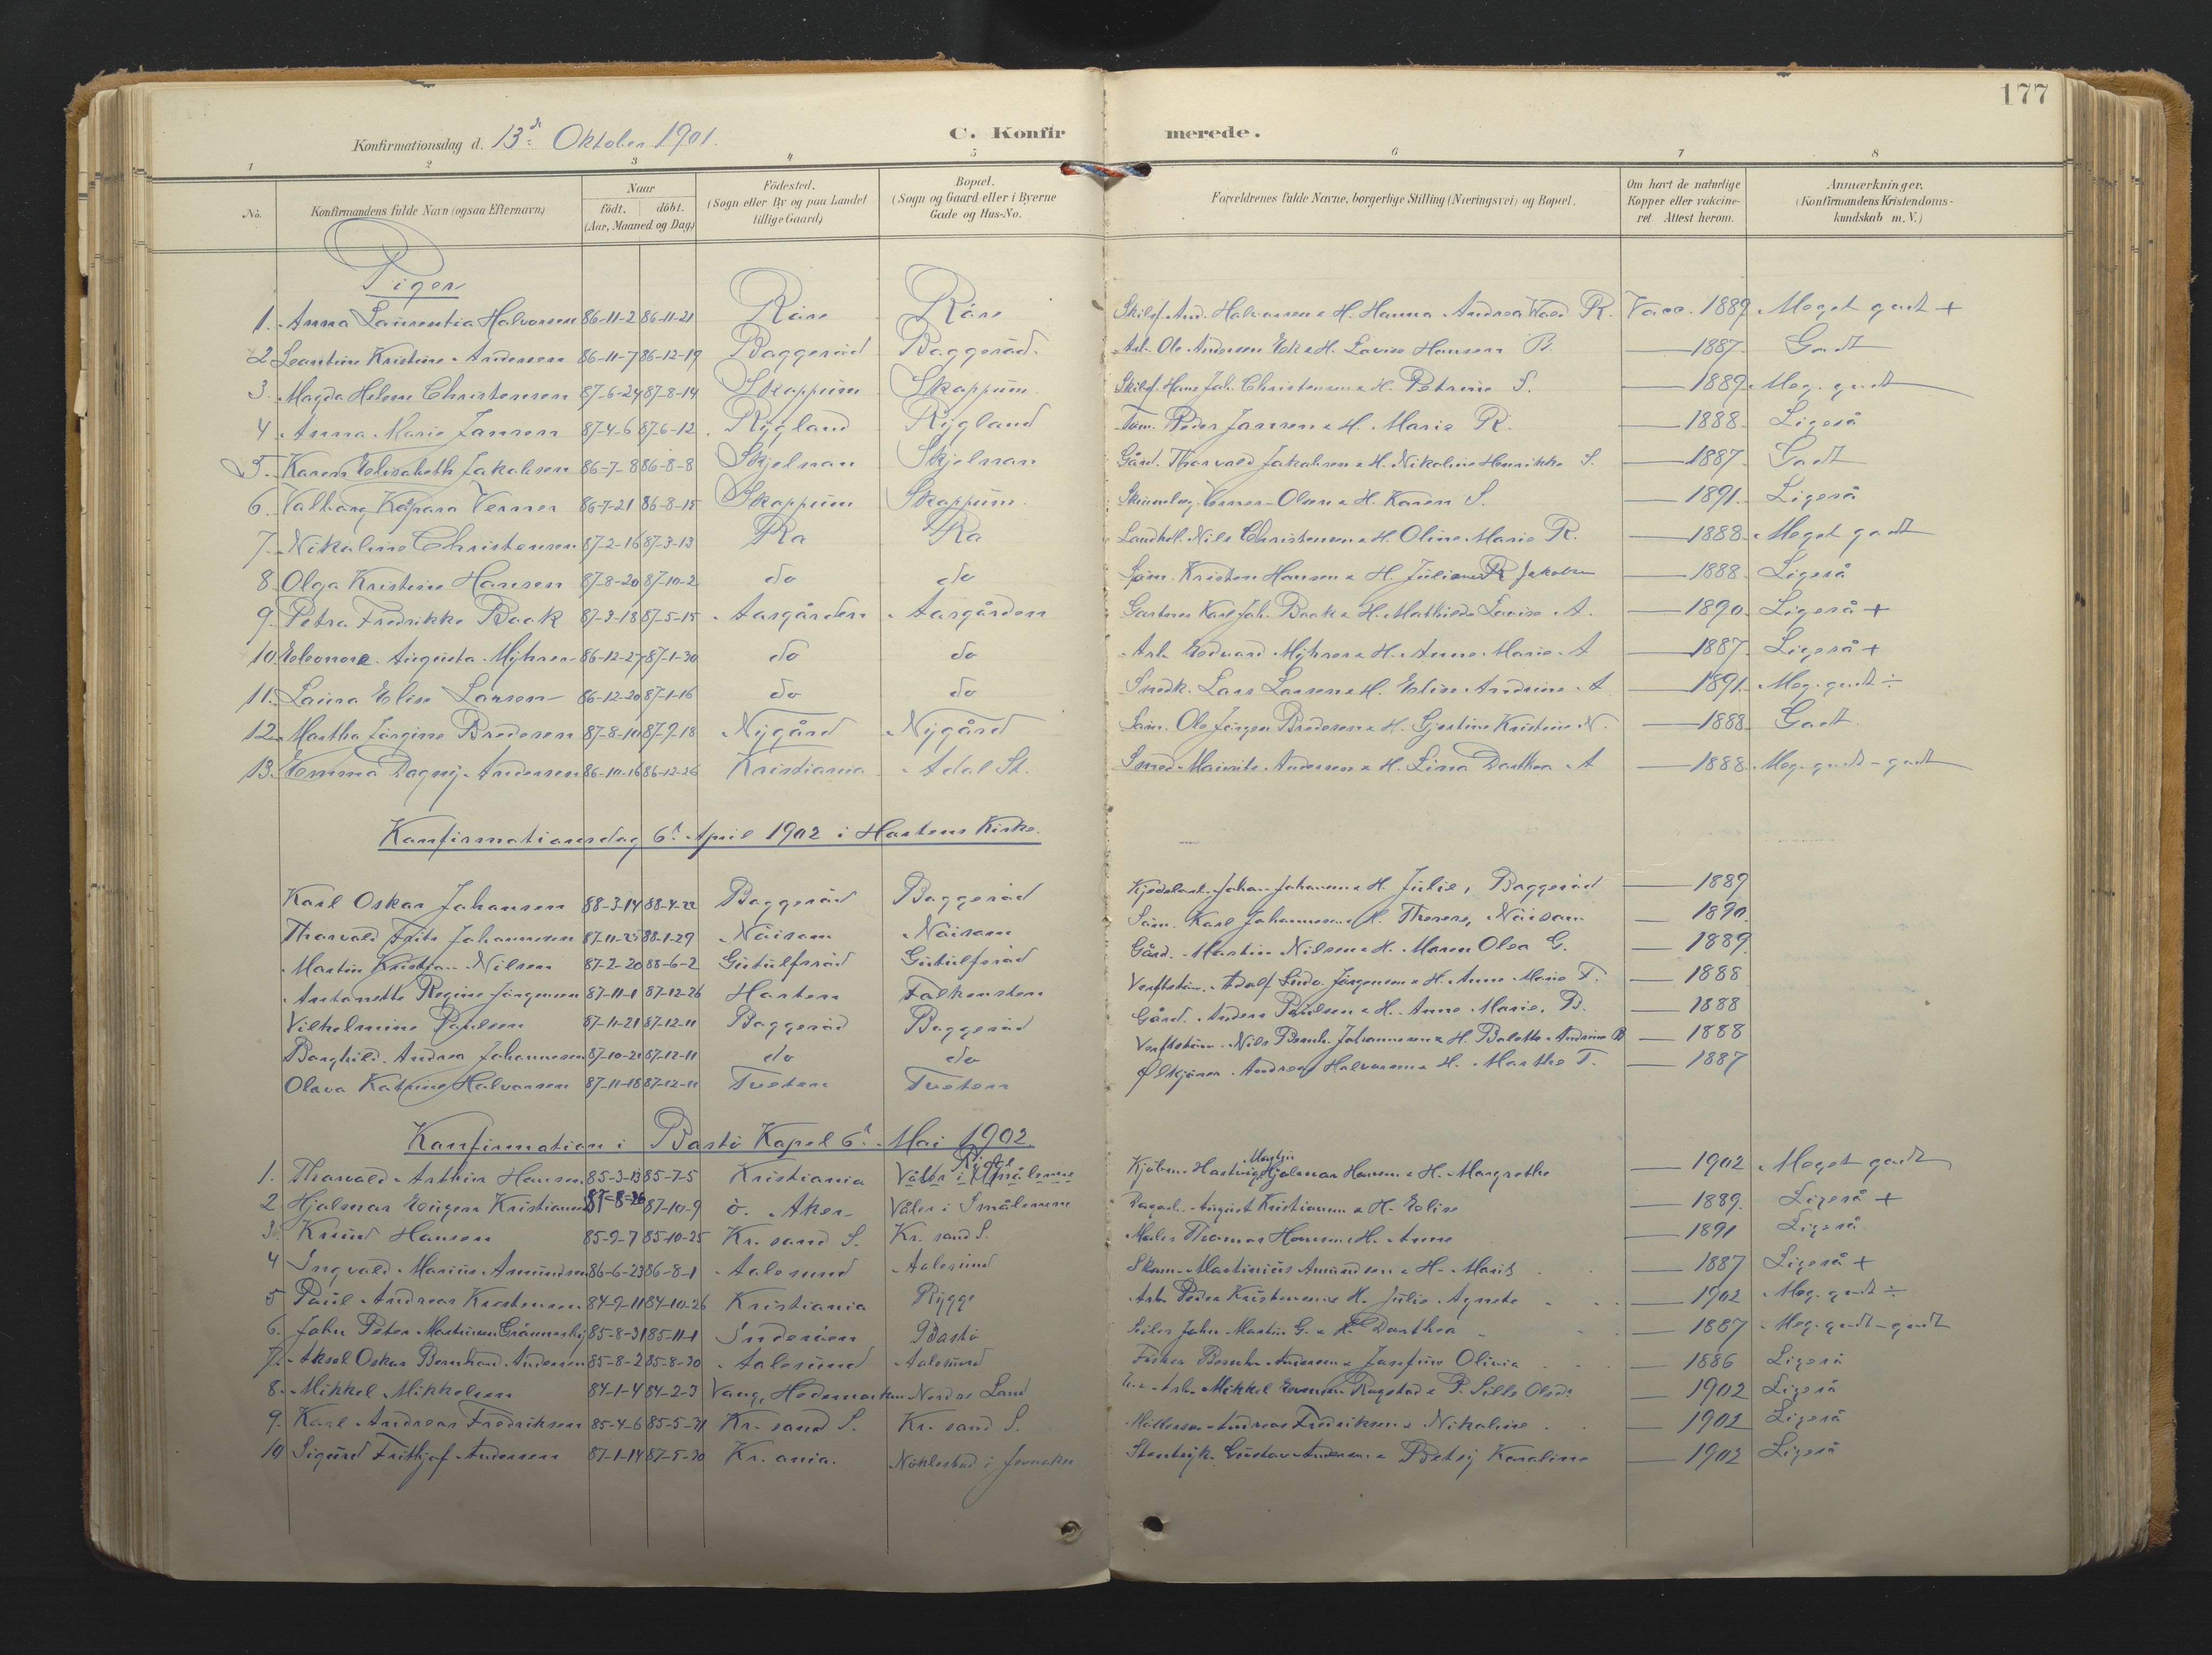 177
Konfirmationsdag d. 13d Oktober 1901.
C. Konfirmerede.
1 2 3 4 5 6 7 8
No.
Konfirmandens fulde Navn (ogsaa Efternavn)
Naar
født. døbt.
(Aar, Maaned og Dag)
Fødested.
(Sogn eller By og paa Landet
tillige Gaard)
Bopæl.
(Sogn og Gaard eller i Byerne
Gade og Hus-No.
Forældrenes fulde Navne, borgerlige Stilling (Næringsvei) og Bopæl.
Om havt de naturlige
Kopper eller vakcine-
ret. Attest herom.
Anmærkninger.
(Konfirmandens Kristendoms-
kundskab m. V.)
Piger
1. Anna Laurentia Halvorsen 86-11-2 86-11-21 Råre Råre And. Halvorsen & H. Hanna Andrea R. Vacc. 1889 Meget godt +
2 Leontine Kristine Andersen 86-11-7 86-12-19 Baggerød Baggerød Arb. Ole Andersen Eek & H. Lovise Hansen B. — 1887 Godt
3. Magda Helene Christensen 87-6-24 87-8-14 Skoppum Skoppum Hans Joh. Christensen & H. Petrine S. — 1889 Meg. godt
4 Anna Marie Jansen 87-4-6 87-6-12 Rygland Rygland Tøm. Peder Jansen & H. Marie R. — 1888 Ligeså
5. Karen Elisabeth Jakobsen 86-7-8 86-8-8 Skjelnan Skjelnan Gård. Thorvald Jakobsen & H. Nikoline Henrikke S. — 1887 Godt
6. Valborg Verner 86-7-21 86-8-15 Skoppum Skoppum Verner Olsen & H. Karen S. — 1891. Ligeså
7. Nikoline Christensen 87-2-16 87-3-13 Ra Ra Landhdl. Nils Christensen & H. Oline Marie R. — 1888 Meget godt
8. Olga Kristine Hansen 87-8-20 87-10-2 do do Kristen Hansen & H. Juliane R. — 1888 Ligeså
9. Petra Fredrikke Baak 87-3-18 87-5-15 Aasgården Aasgården Gartner Karl Joh. Baak & H. Mathilde Lovise A. — 1890. Ligeså +
10 Eleonore Augusta Myhrer 86-12-27 87-1-30 do do Arb. Edvard Myhrer & H. Anne Marie A — 1887 Ligeså +
11. Laura Elise Larsen 86-12-20 87-1-16 do do Snedk. Lars Larsen & H. Elise Andrine A — 1891. Meg. godt ÷
12. Martha Jørgine Bredesen 87-8-10 87-9-18 Nygård Nygård Ole Jørgen Bredesen & H. Gjertine Kristine N. — 1888 Godt
13. Emma Dagny Andersen 86-10-16 86-12-26 Kristiania Adal St. Smed Mauritz Andersen & H. Lina Dorthea A — 1888 Meg. godt - godt
Konfirmationsdag 6t April 1902 i Hortens Kirke.
Karl Oskar Johansen 88-3-14 88-4-22 Baggerød Baggerød Johan Johansen & H. Julie, Baggerød — 1889
Thorvald Frits Johannesen 87-11-25 88-1-29 Karl Johannesen & H. Therese, — 1890.
Martin Kristian Nilsen 87-2-20 88-6-2 Gutulfsrød Gutulfsrød Gård. Martin Nilsen & H. Maren Olea G. — 1889
Antonette Regine Jørgensen 87-11-1 87-12-26 Horten Falkensten Verftstøm. Adolf Ludv. Jørgensen & H. Anne Marie F. — 1888
Vilhelmine Paulsen 87-11-21 87-12-11 Baggerød Baggerød Gård. Anders Paulsen & H. Anne Marie, B. — 1888
Borghild Andrea Johannesen 87-10-21 87-12-11 do do Verftstøm. Nils Bernh. Johannesen & H. Bolette Andrine B — 1888
Olava Katrine Halvorsen 87-11-18 87-12-11 Tveten Tveten Ølkjører Andreas Halvorsen & H. Marthe T. — 1887
Konfirmation i Bastø Kapel 6t Mai 1902.
1. Thorvald Arthur Hansen 85-3-13 85-7-5 Kristiania Rygge Våler i Smålenene Kjøbm. Hartvig Hjalmar Hansen & H. Margrethe — 1902 Meget godt
2. Hjalmar Eugen Kristiansen 87-8-26 87-10-9 Ø. Aker Våler i Smålenene August Kristiansen & H. Elise — 1889. Ligeså +
3. Knud Hansen 85-9-7 85-10-25 Kr. sand S. Kr. sand S. Maler Thomas Hansen & H. Anne — 1891 Ligeså
4 Ingvald Marius Amundsen 86-6-23 86-8-1 Aalesund Aalesund Skom. Martinius Amundsen & H. Marit — 1887 Ligeså +
5 Paul Andreas Kristensen 84-9-11 84-10-26 Kristiania Rygge Arb. Peder Kristensen & H. Julie Agnete — 1902 Meg. godt ÷
6. John Peter Martinsen 85-8-31 85-11-1 Inderøen Bastø John Martin G. & H. Dorthea — 1887 Meg. godt - godt
7. Aksel Oskar Bernhard Andersen 85-8-2 85-8-30 Aalesund Aalesund Fisker Bernh. Andersen & Josefine Olivia — 1886 Ligeså
8. Mikkel Mikkelsen 84-1-4 84-2-3 Vang, Hedemarken Nordre Land Arb. Mikkel Evensen & P. Sille Olsdr — 1902 Ligeså
9. Karl Andreas Fredriksen 85-4-6 85-5-31 Kr. sand S. Kr. sand S. Andreas Fredriksen & Nikoline — 1902 Ligeså
10 Sigurd Frithjof Andersen 87-1-14 87-5-30 Kr. ania. Gustav Andersen & Betsy Karoline — 1902 Ligeså